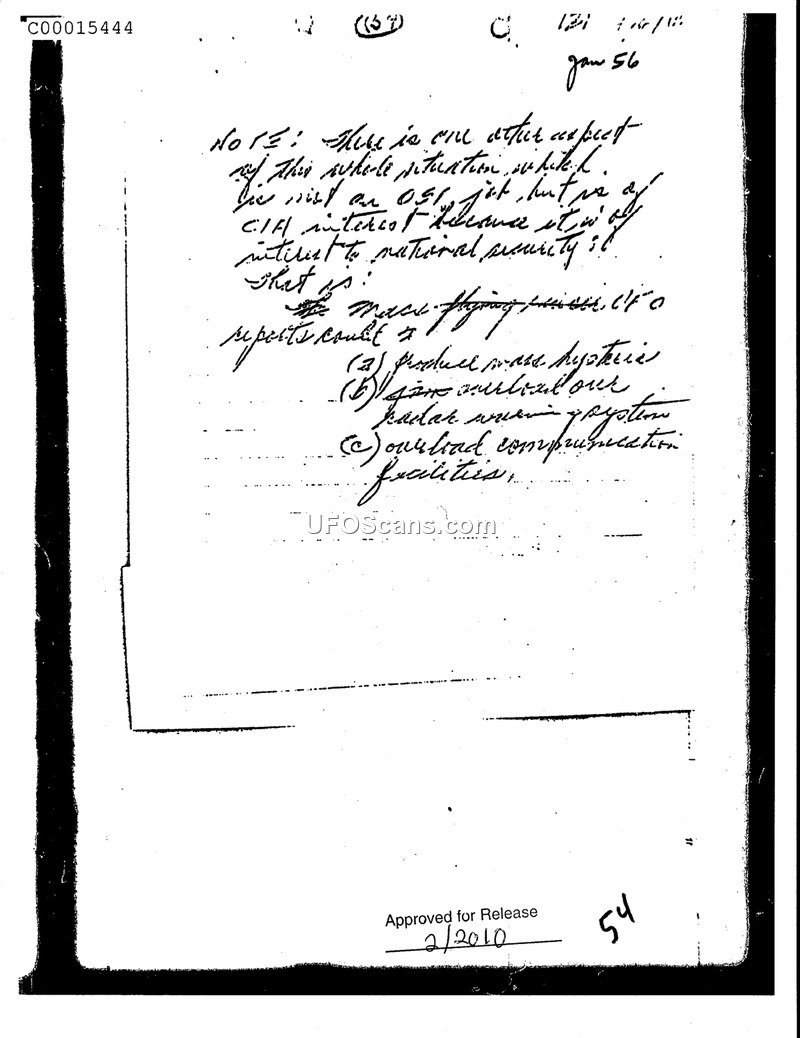 C00015444
(54)
Jan 56
NOTE: There is one other aspect
of this whole situation which
is not an OSI job, but is of
CIA interest because it is of
interest to national security:
That is:
The mass flying saucer UFO
reports could
(a) produce mass hysteria
(b) jam overload our
radar warning system
(c) overload communication
facilities.
UFOScans.com
Approved for Release
2/2010
54